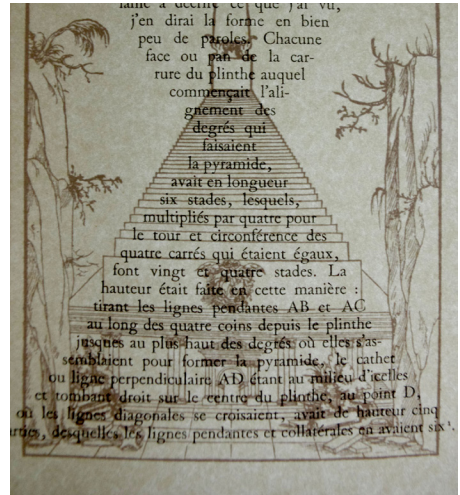 à décrire ce que j'ai vu,
j'en dirai la forme en bien
peu de paroles. Chacune
face ou pan de la car-
rure du plinthe auquel
commençait l'ali-
gnement des
degrés qui
faisaient
la pyramide,
avait en longueur
six stades, lesquels,
multipliés par quatre pour
le tour et circonférence des
quatre carrés qui étaient égaux,
font vingt et quatre stades. La
hauteur était faite en cette manière :
tirant les lignes pendantes AB et AC
au long des quatre coins depuis le plinthe
jusques au plus haut des degrés où elles s'as-
semblaient pour former la pyramide, le cathet
ou ligne perpendiculaire AD étant au milieu d'icelles
et tombant droit sur le centre du plinthe, au point D,
où les lignes diagonales se croisaient, avait de hauteur cinq
desquelles les lignes pendantes et collatérales en avaient six¹.